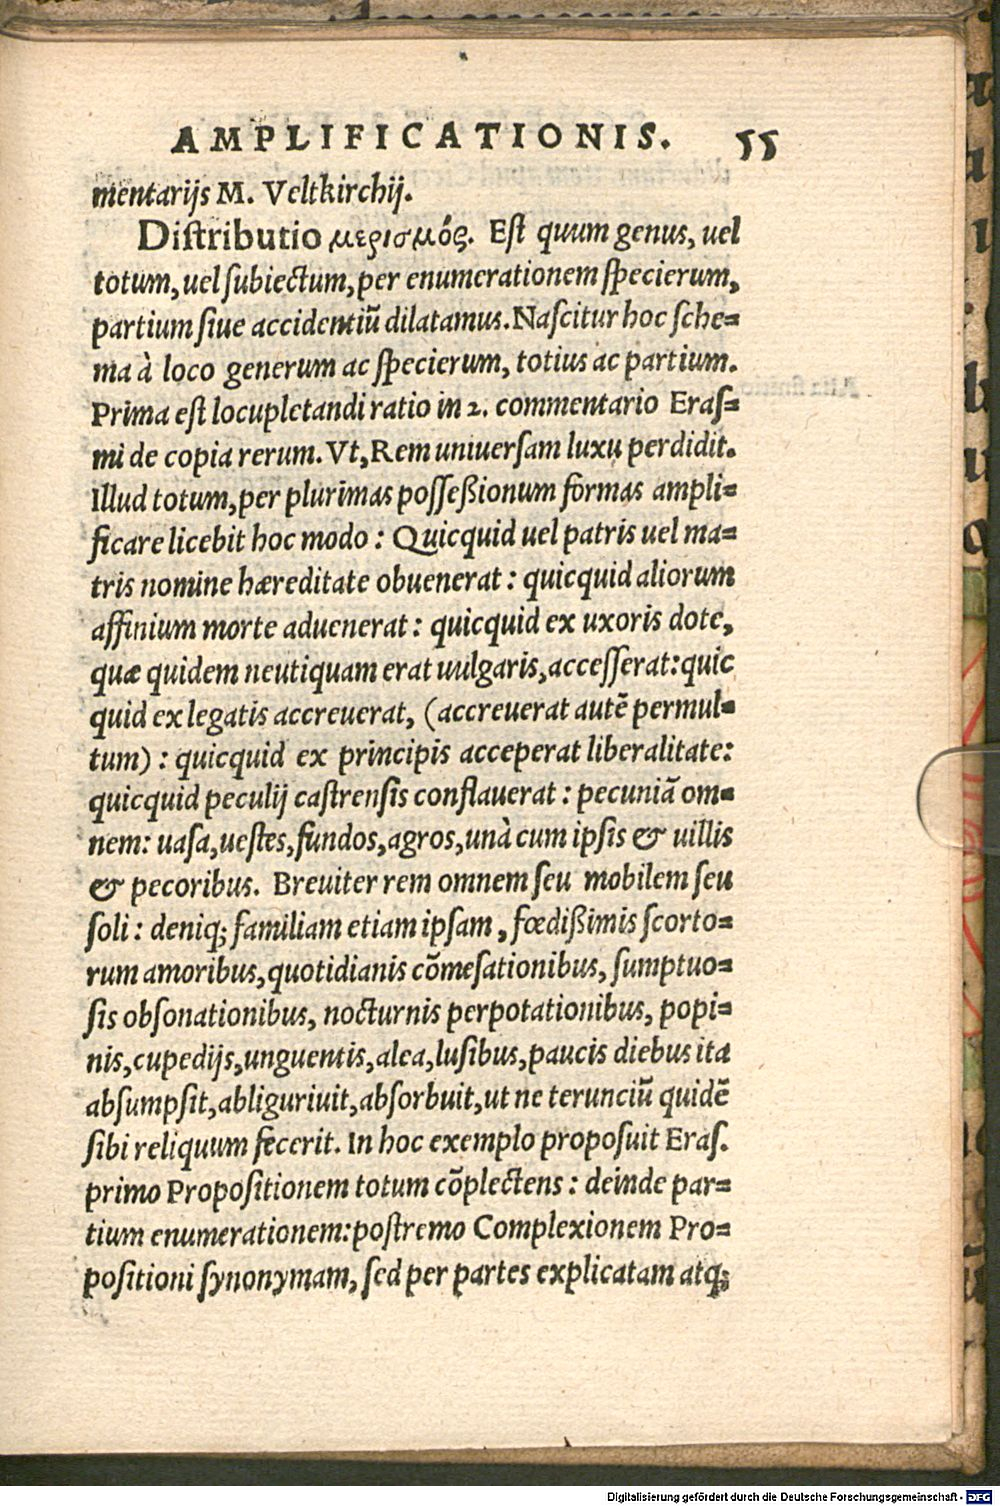 AMPLIFICATIONIS. 55
mentarijs M. Veltkirchij.
Distributio μερισμός. Est quum genus, uel
totum, uel subiectum, per enumerationem specierum,
partium siue accidentiũ dilatamus. Nascitur hoc sche=
ma à loco generum ac specierum, totius ac partium.
Prima est locupletandi ratio in 2. commentario Eras=
mi de copia rerum. Vt, Rem uniuersam luxu perdidit.
Illud totum, per plurimas posseßionum formas ampli=
ficare licebit hoc modo : Quicquid uel patris uel ma=
tris nomine hæreditate obuenerat : quicquid aliorum
affinium morte aduenerat : quicquid ex uxoris dote,
quæ quidem neutiquam erat uulgaris, accesserat: quic
quid ex legatis accreuerat, (accreuerat autẽ permul=
tum) : quicquid ex principis acceperat liberalitate:
quicquid peculij castrensis conflauerat : pecuniã om=
nem: uasa, uestes, fundos, agros, unà cum ipsis & uillis
& pecoribus. Breuiter rem omnem seu mobilem seu
soli : deniq; familiam etiam ipsam, fœdißimis scorto=
rum amoribus, quotidianis cõmesationibus, sumptuo=
sis obsonationibus, nocturnis perpotationibus, popi=
nis, cupedijs, unguentis, alea, lusibus, paucis diebus ita
absumpsit, abliguriuit, absorbuit, ut ne terunciũ quidẽ
sibi reliquum fecerit. In hoc exemplo proposuit Eras.
primo Propositionem totum cõplectens : deinde par=
tium enumerationem: postremo Complexionem Pro=
positioni synonymam, sed per partes explicatam atq;
Digitalisierung gefördert durch die Deutsche Forschungsgemeinschaft - DFG